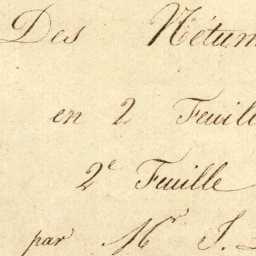 Des Nétum
en 2 Feuill
2e Feuille
par Mr J.